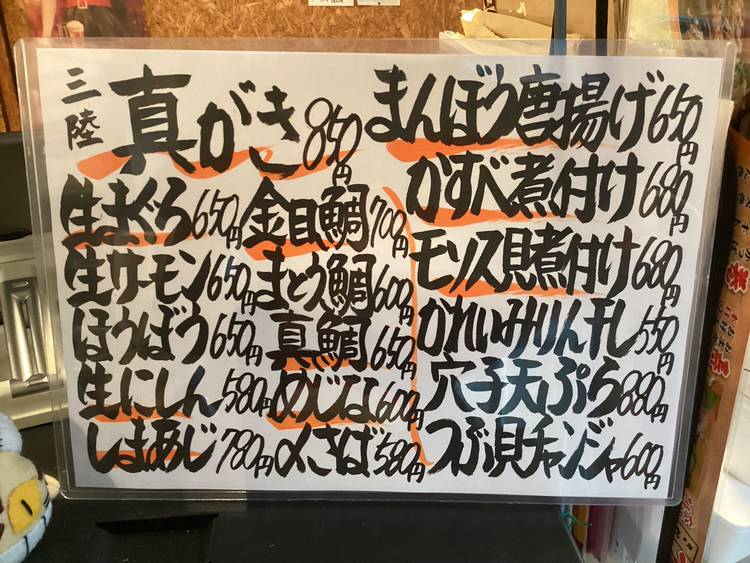 三陸 真がき 850円
生まぐろ 650円
生サーモン 650円
ほうぼう 650円
生にしん 580円
しまあじ 780円
金目鯛 700円
まとう鯛 600円
真鯛 650円
めじな 600円
〆さば 580円
まんぼう唐揚げ 650円
かすべ煮付け 680円
モソス貝煮付け 680円
かれいみりん干し 550円
穴子天ぷら 880円
つぶ貝チャンジャ 600円